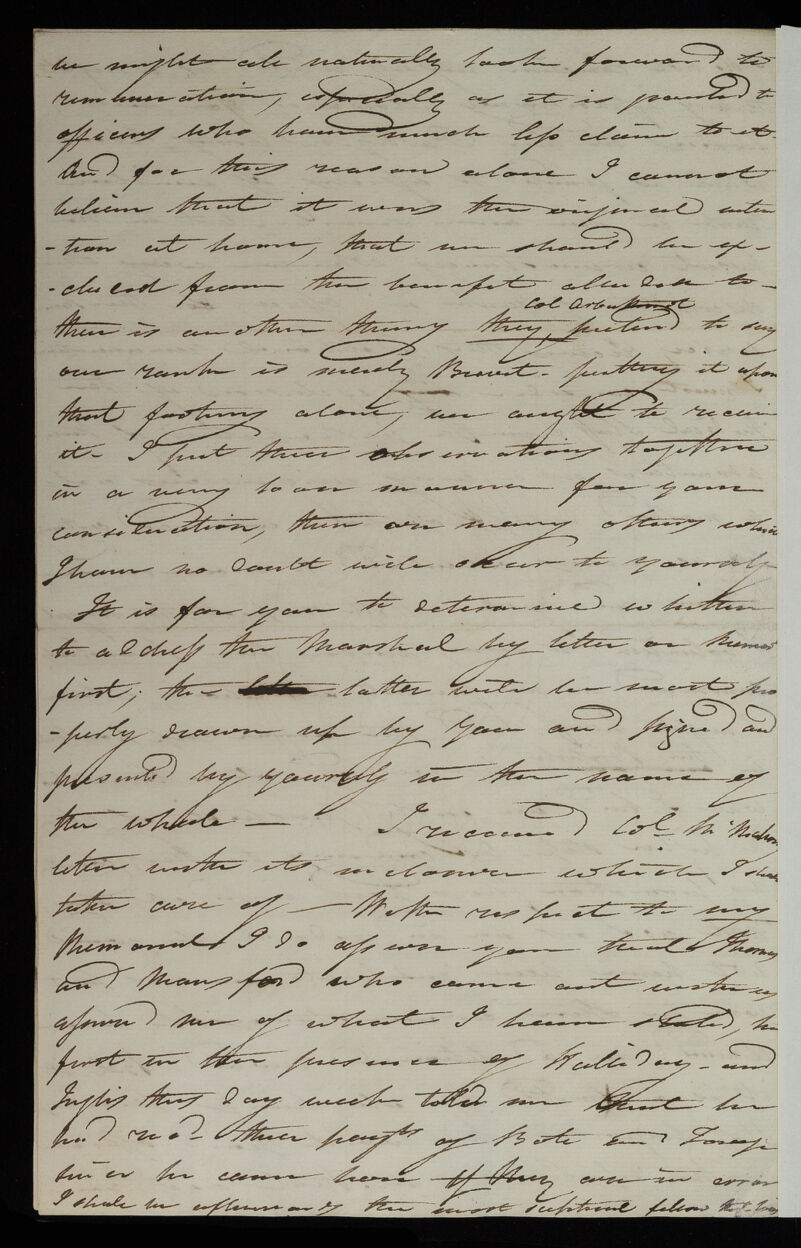 we might all naturally look forward to
remuneration, especially as it is granted to
officers who have much less claim to it.
And for this reason alone I cannot
believe that it was the original inten
-tion at home, that we should be ex-
-cluded from the benefit alluded to -
Col Arbuthnot
there is another thing they, pretend to say
our rank is merely Brevet - putting it upon
that footing alone, we ought to receive
it - I put these observations together
in a very loose manner for your
consideration, there are many others which
I have no doubt will occur to yourself
It is for you to determine whether
to address the Marshal by letter or Memor
first; the latter will be most pro
-perly drawn up by you and signed and
presented by yourself in the name of
the whole - I received Col.
letter with its inclosure which I shall
take care of - With respect to my
Memorial I do assure you that Thomas
and Mansford who came out with us
assured me of what I have stated, the
first in the presence of Halliday - and
Inglis this day week told me that he
had read three of
since he came here If they are in error
I shall be the most fellow